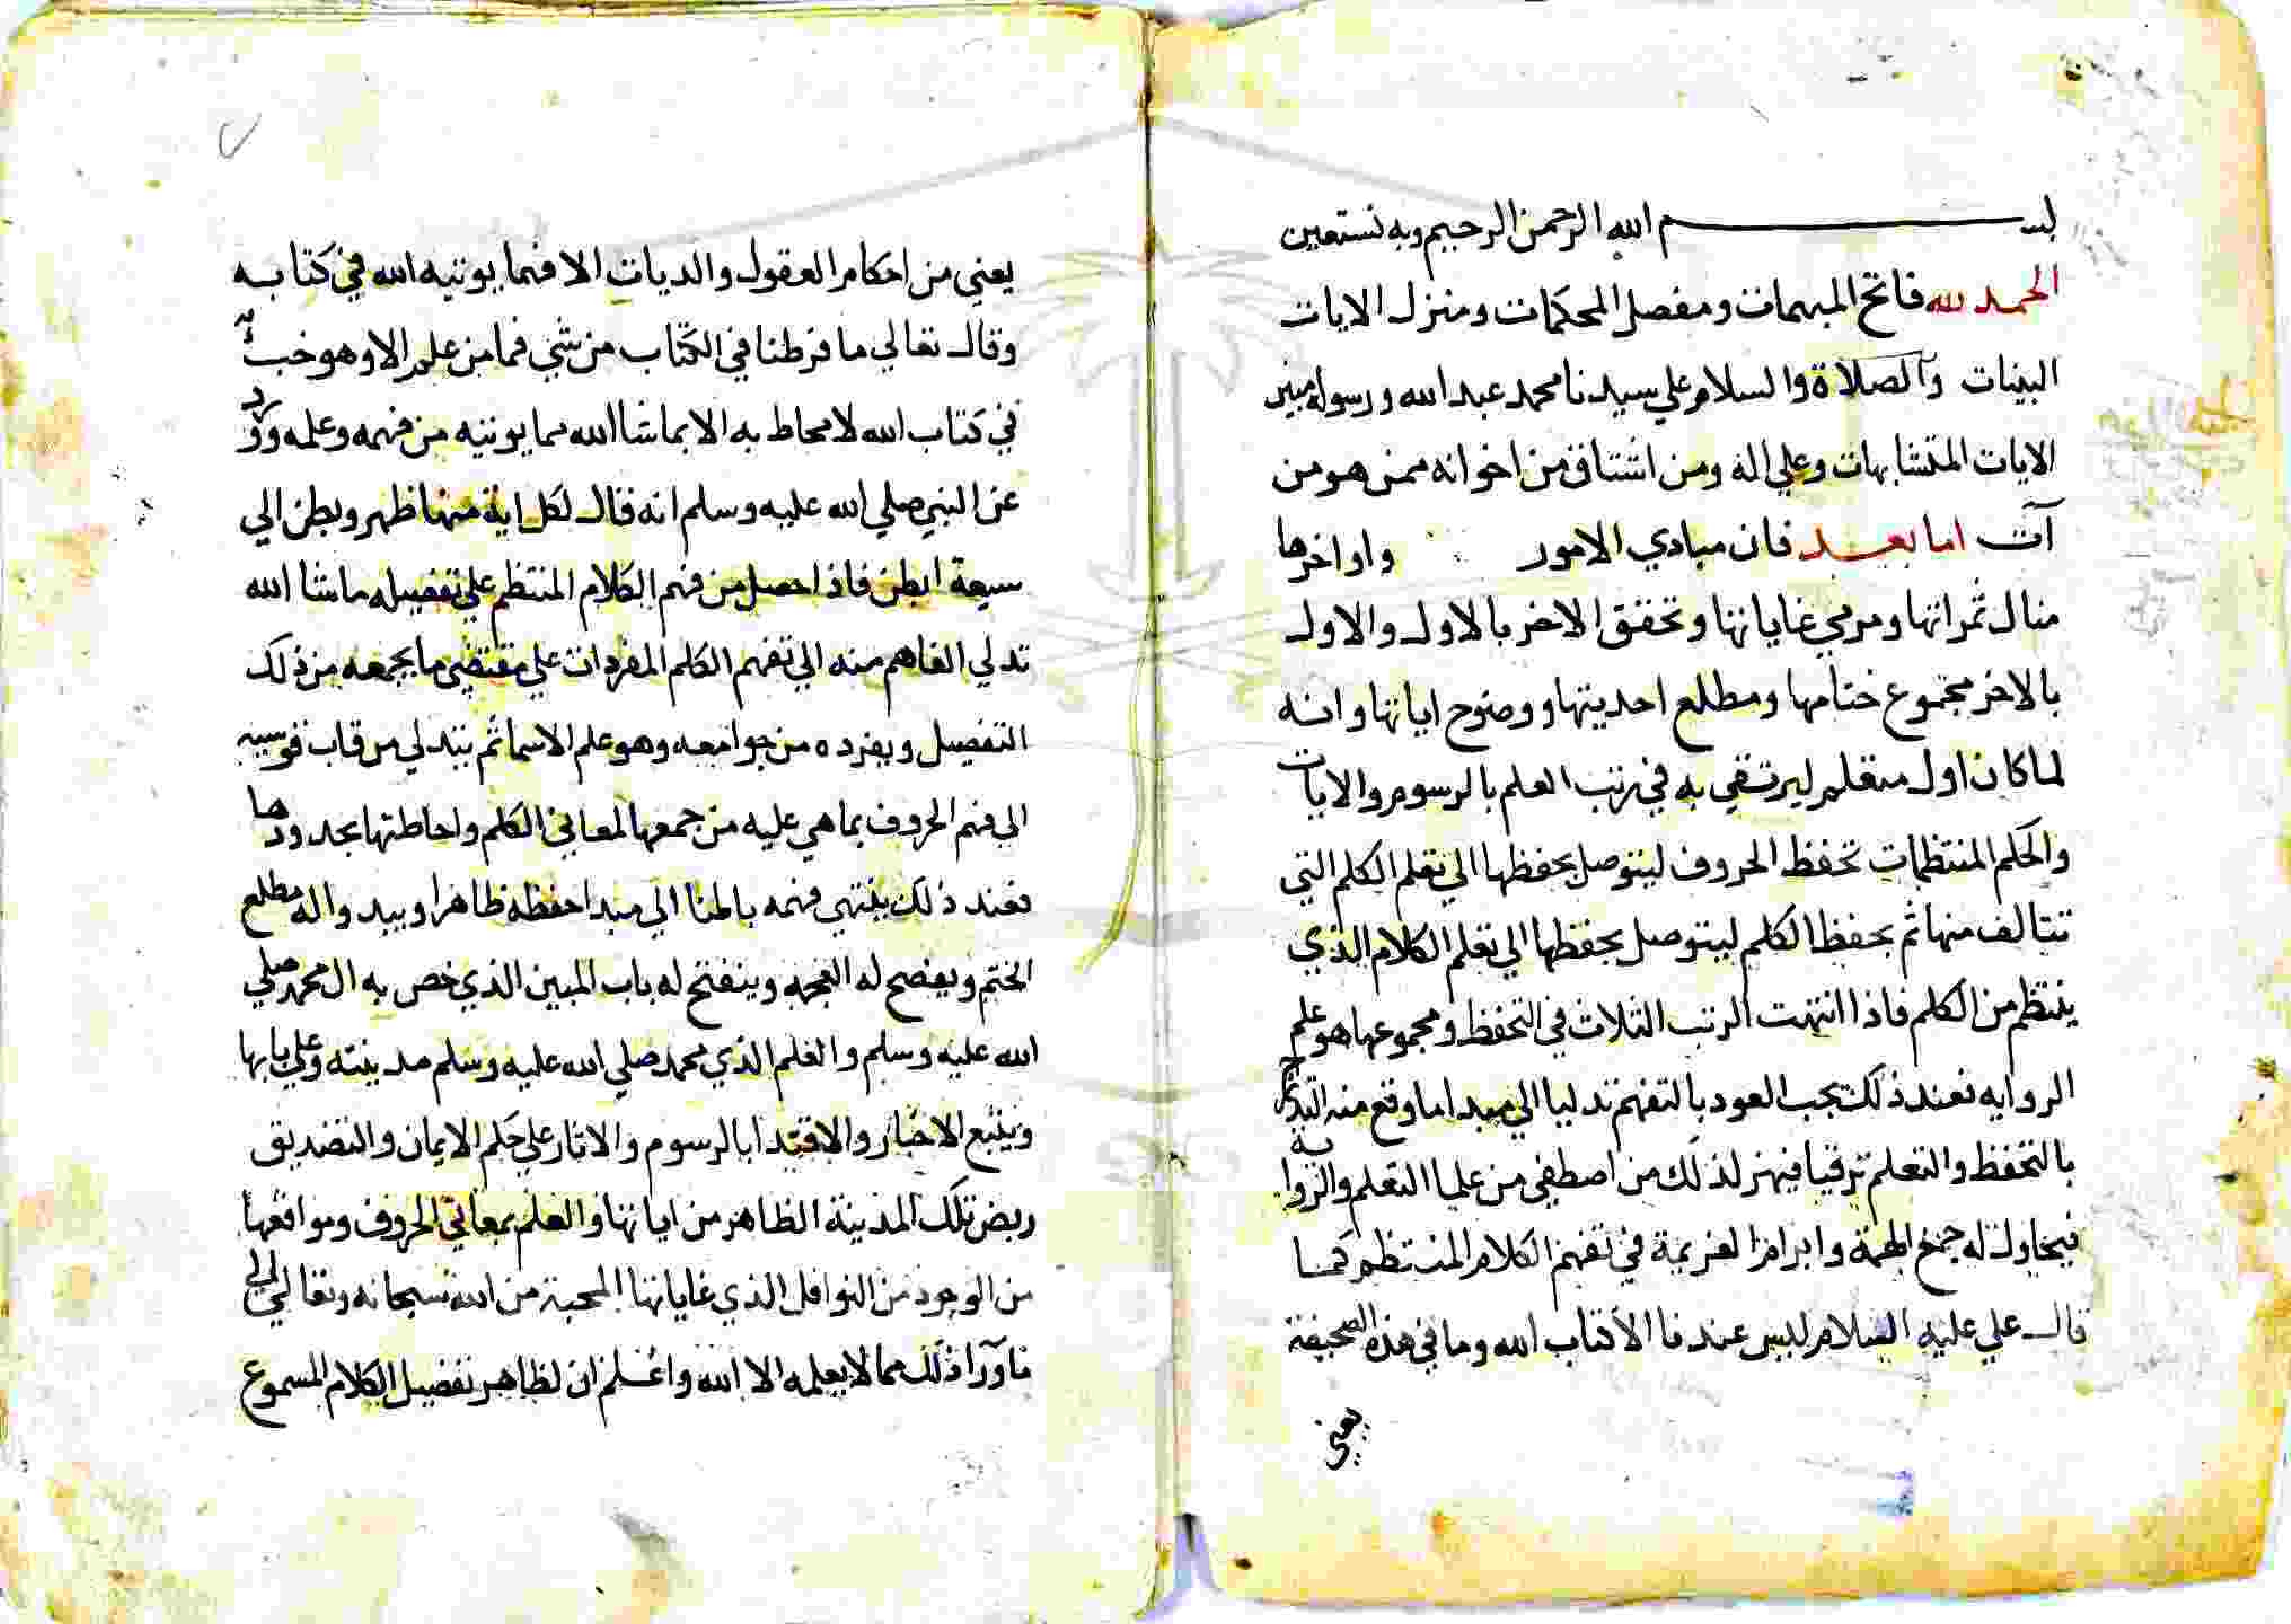 بسم الله الرحمن الرحيم وبه نستعين
الحمد لله فاتح المبهمات ومفصل المحكمات ومنزل الايات
البينات والصلاة والسلام علي سيدنا محمد عبد الله ورسوله مبين
الايات المتشابهات وعلي اله ومن اشتاق من اخوانه ممن هو من
آت اما بعد فان مبادي الامور واواخرها
منال ثمراتها ومرمي غاياتها وتحقق الاخر بالاول والاول
بالاخر مجموع ختامها ومطلع احديتها ووضوح اياتها وانه
لما كان اول متعلم ليرتقي به في رتب العلم بالرسوم والايات
والحكم المنتظمات تحفظ الحروف ليتوصل بحفظها الي تعلم الكلم التي
تتالف منها ثم بحفظ الكلم ليتوصل بحفظها الي تعلم الكلام الذي
ينتظم من الكلم فاذا انتهت الرتب الثلاث في التحفظ ومجموعها هو علم
الروايه فعند ذلك يجب العود بالتفهم تدليا الي مبدا ما وقع منه
بالتحفظ والتعلم ترقيا فيهز لذلك من اصطفي من عليا التعلم والرواية
فيحاول له جمع الهمة وابرام العزيمة في تفهم الكلام المنتظم كما
قال علي عليه السلام ليس عندنا الا كتاب الله وما في هذه الصحيفة
يعني
يعني من احكام العقول والديات الا فهما يوتيه الله في كتابه
وقال تعالي ما فرطنا في الكتاب من شي فما من علم الا وهو خبيه
في كتاب الله لا يحاط به الا بما شا الله مما يوتيه من فهمه وعلمه وورد
عن النبي صلي الله عليه وسلم انه قال لكل اية منها ظهر وبطن الي
سبعة ابطن فاذا حصل من فهم الكلام المنتظم علي تفصيله ما شا الله
تدلي الفاهم منه الي تفهم الكلم المفردات علي مقتضي ما يجمعه من ذلك
التفصيل ويفرده من جوامعه وهو علم الاسما ثم يتدلي من قاب قوسيه
الي فهم الحروف بما هي عليه من جمعها لمعاني الكلم واحاطتها بحدودها
فعند ذلك ينتهي فهمه بالمنا الي مبدا حفظه ظاهرا ويبدوا له مطلع
الختم ويفصح له العجمه وينفتح له باب المبين الذي خص به ال محمد صلي
الله عليه وسلم والعلم الذي محمد صلي الله عليه وسلم مدينته وعلي بابها
ويتبع الاخبار والاقتدا بالرسوم والاثار علي حكم الايمان والتصديق
ربض تلك المدينة الظاهر من اياتها والعلم بمعاني الحروف ومواقعها
من الوجود من النوافل الذي غاياتها المحبة من الله سبحانه وتعالي الي
ما ورا ذلك مما لا يعلمه الا الله واعلم ان لظاهر تفصيل الكلام المسموع